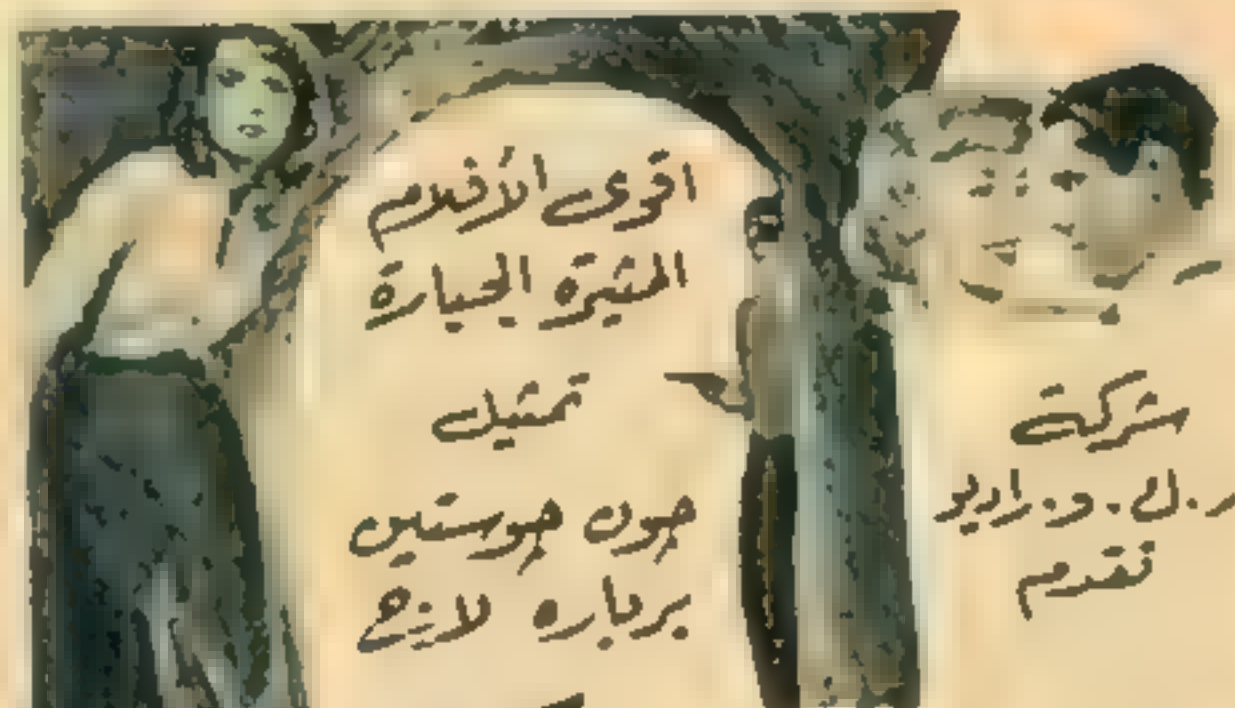 شركة
ر.ك.و.راديو
تقدم
اقوى الأفلام
المثيرة الجبارة
تمثيل
چون چوستين
بربارہ لانج